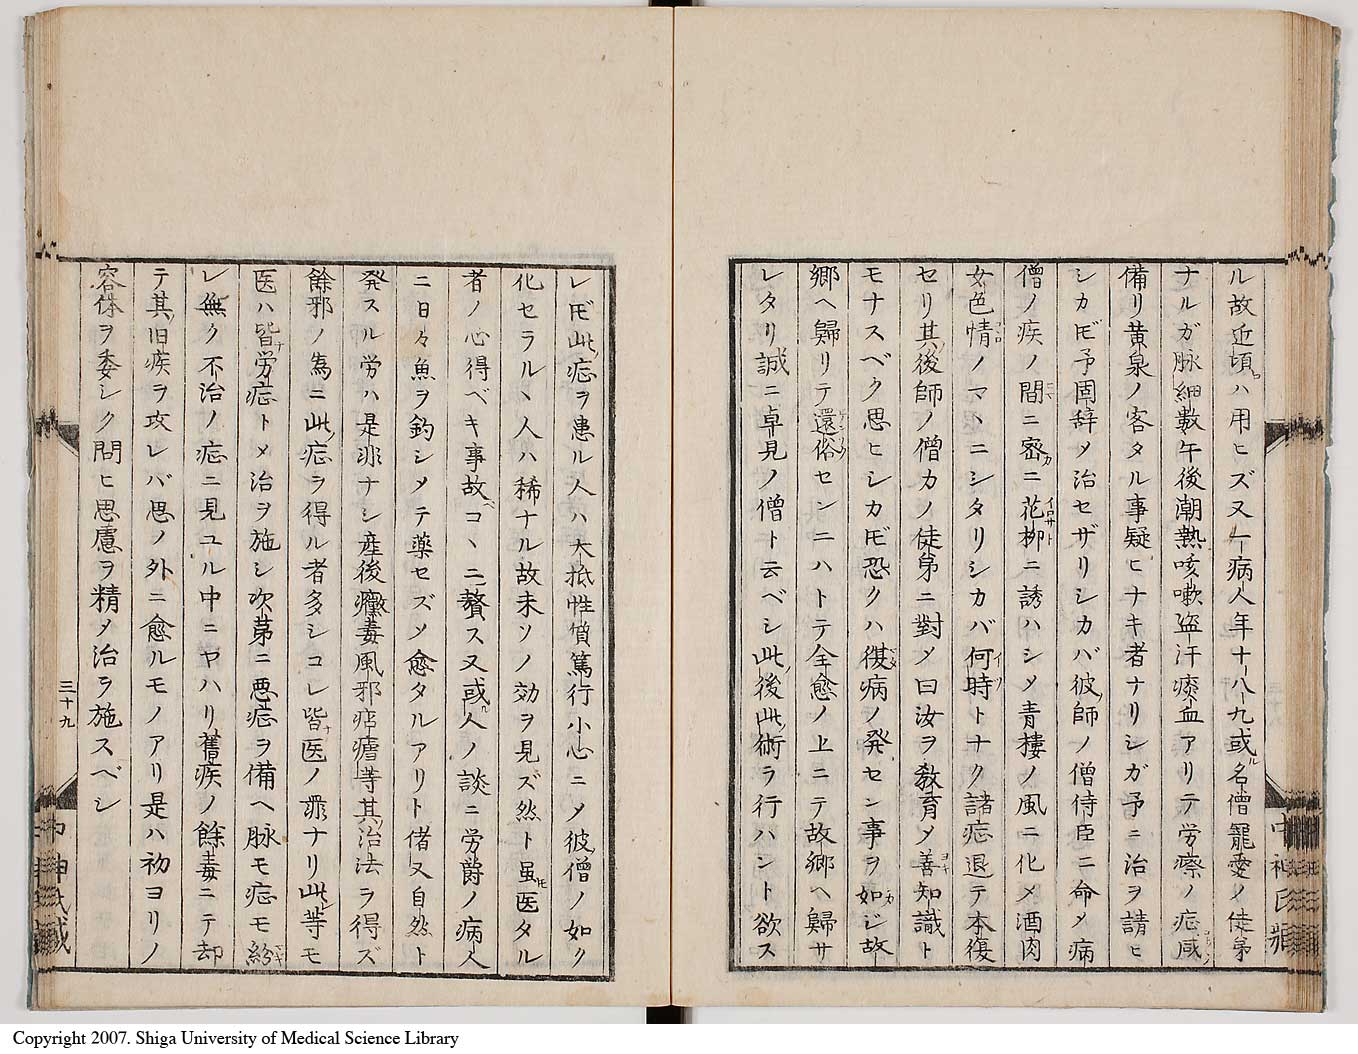 ル故近頃ハ用ヒズ又一病人年十八九或ル名僧寵愛ノ徒弟
ナルガ脉細數午後潮熱咳嗽盗汗瘀血アリテ労瘵ノ症咸
備リ黄泉ノ客タル事疑ヒナキ者ナリシガ予ニ治ヲ請ヒ
シカ𪜈予固辞メ治セザリシカバ彼師ノ僧侍臣ニ命メ病
僧ノ疾ノ間ニ密ニ花柳ニ誘ハシメ青樓ノ風ニ化メ酒肉
女色情ノマヽニシタリシカバ何時トナク諸症退テ本復
セリ其後師ノ僧カノ徒弟ニ對メ曰汝ヲ教育メ善知識ト
モナスベク思ヒシカ𪜈恐クハ復病ノ発セン事ヲ如ジ故
郷ヘ歸リテ還俗センニハトテ全愈ノ上ニテ故郷ヘ歸サ
レタリ誠ニ卓見ノ僧ト云ベシ此後此術ヲ行ハント欲ス
レ𪜈此症ヲ患ル人ハ大抵性質篤行小心ニメ彼僧ノ如ク
化セラルヽ人ハ稀ナル故未ソノ効ヲ見ズ然ト虽𪜈医タル
者ノ心得ベキ事故コヽニ贅ス又或ル人ノ談ニ労爵ノ病人
ニ日々魚ヲ釣シメテ薬セズメ愈タルアリト偖又自然ト
発スル労ハ是非ナシ産後黴毒風邪痞瘧等其治法ヲ得ズ
餘邪ノ為ニ此症ヲ得ル者多シコレ皆医ノ罪ナリ此等モ
医ハ皆労症トメ治ヲ施シ次第ニ悪症ヲ備ヘ脉モ症モ紛
レ無ク不治ノ症ニ見ユル中ニヤハリ舊疾ノ餘毒ニテ却
テ其旧疾ヲ攻レバ思ノ外ニ愈ルモノアリ是ハ初ヨリノ
容体ヲ委シク問ヒ思慮ヲ精メ治ヲ施スベシ
三十九
Copyright 2007. Shiga University of Medical Science Library